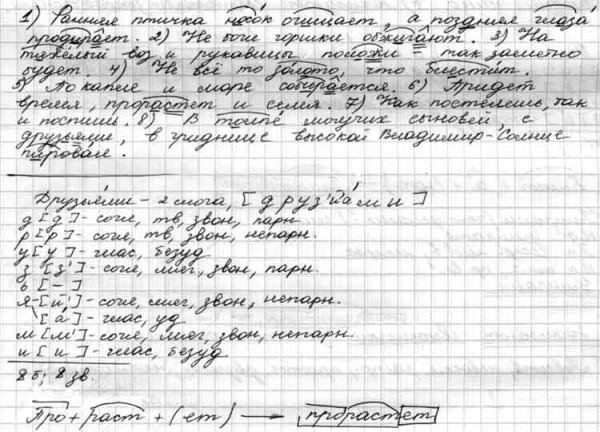 1) Ранняя птичка носок очищает, а поздняя глаза
продирает. 2) Не боги горшки обжигают. 3) На
тяжёлый воз и рукавицы положи – так заметно
будет. 4) Не всё то золото, что блестит.
5) По капле и море собирается. 6) Придет
время, прорастет и семя. 7) Как постелешь, так
и поспишь. 8) В толпе могучих сыновей, с
друзьями, в гриднице высокой Владимир-Солнце
пировал.
Друзьями – 2 слога, [д р у з' й' а м и]
д [д] - согл, тв, звон, парн
р [р] - согл, тв, звон, непарн.
у [у] - глас, безуд
з [з'] - согл, мяг, звон, парн.
ь [–]
я [й'] - согл, мяг, звон, непарн.
[а́] - глас, уд
м [м'] - согл, мяг, звон, непарн.
и [и] - глас, безуд
8 б; 8 зв.
Про + раст + (ет) → прорастет